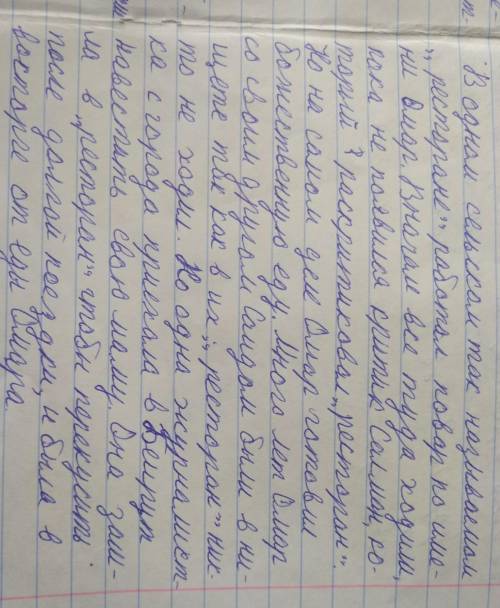 В одном сельском так называемом
„ресторане" работал повар по име-
ни Омар. Вначале все туда ходили,
пока не появился критик Салма, ко-
торый раскритиковал „ресторан".
Но на самом деле Омар готовил
божественную еду. Много лет Омар
со своим другом Саидом были в ни-
щете так как в их „ресторан" ник-
то не ходил. Но одна журналист-
ка с города приехала в Бейрут
навестить свою маму. Она заш-
ла в „ресторан" чтобы перекусить
после долгой поездки, и была в
восторге от еды Омара.